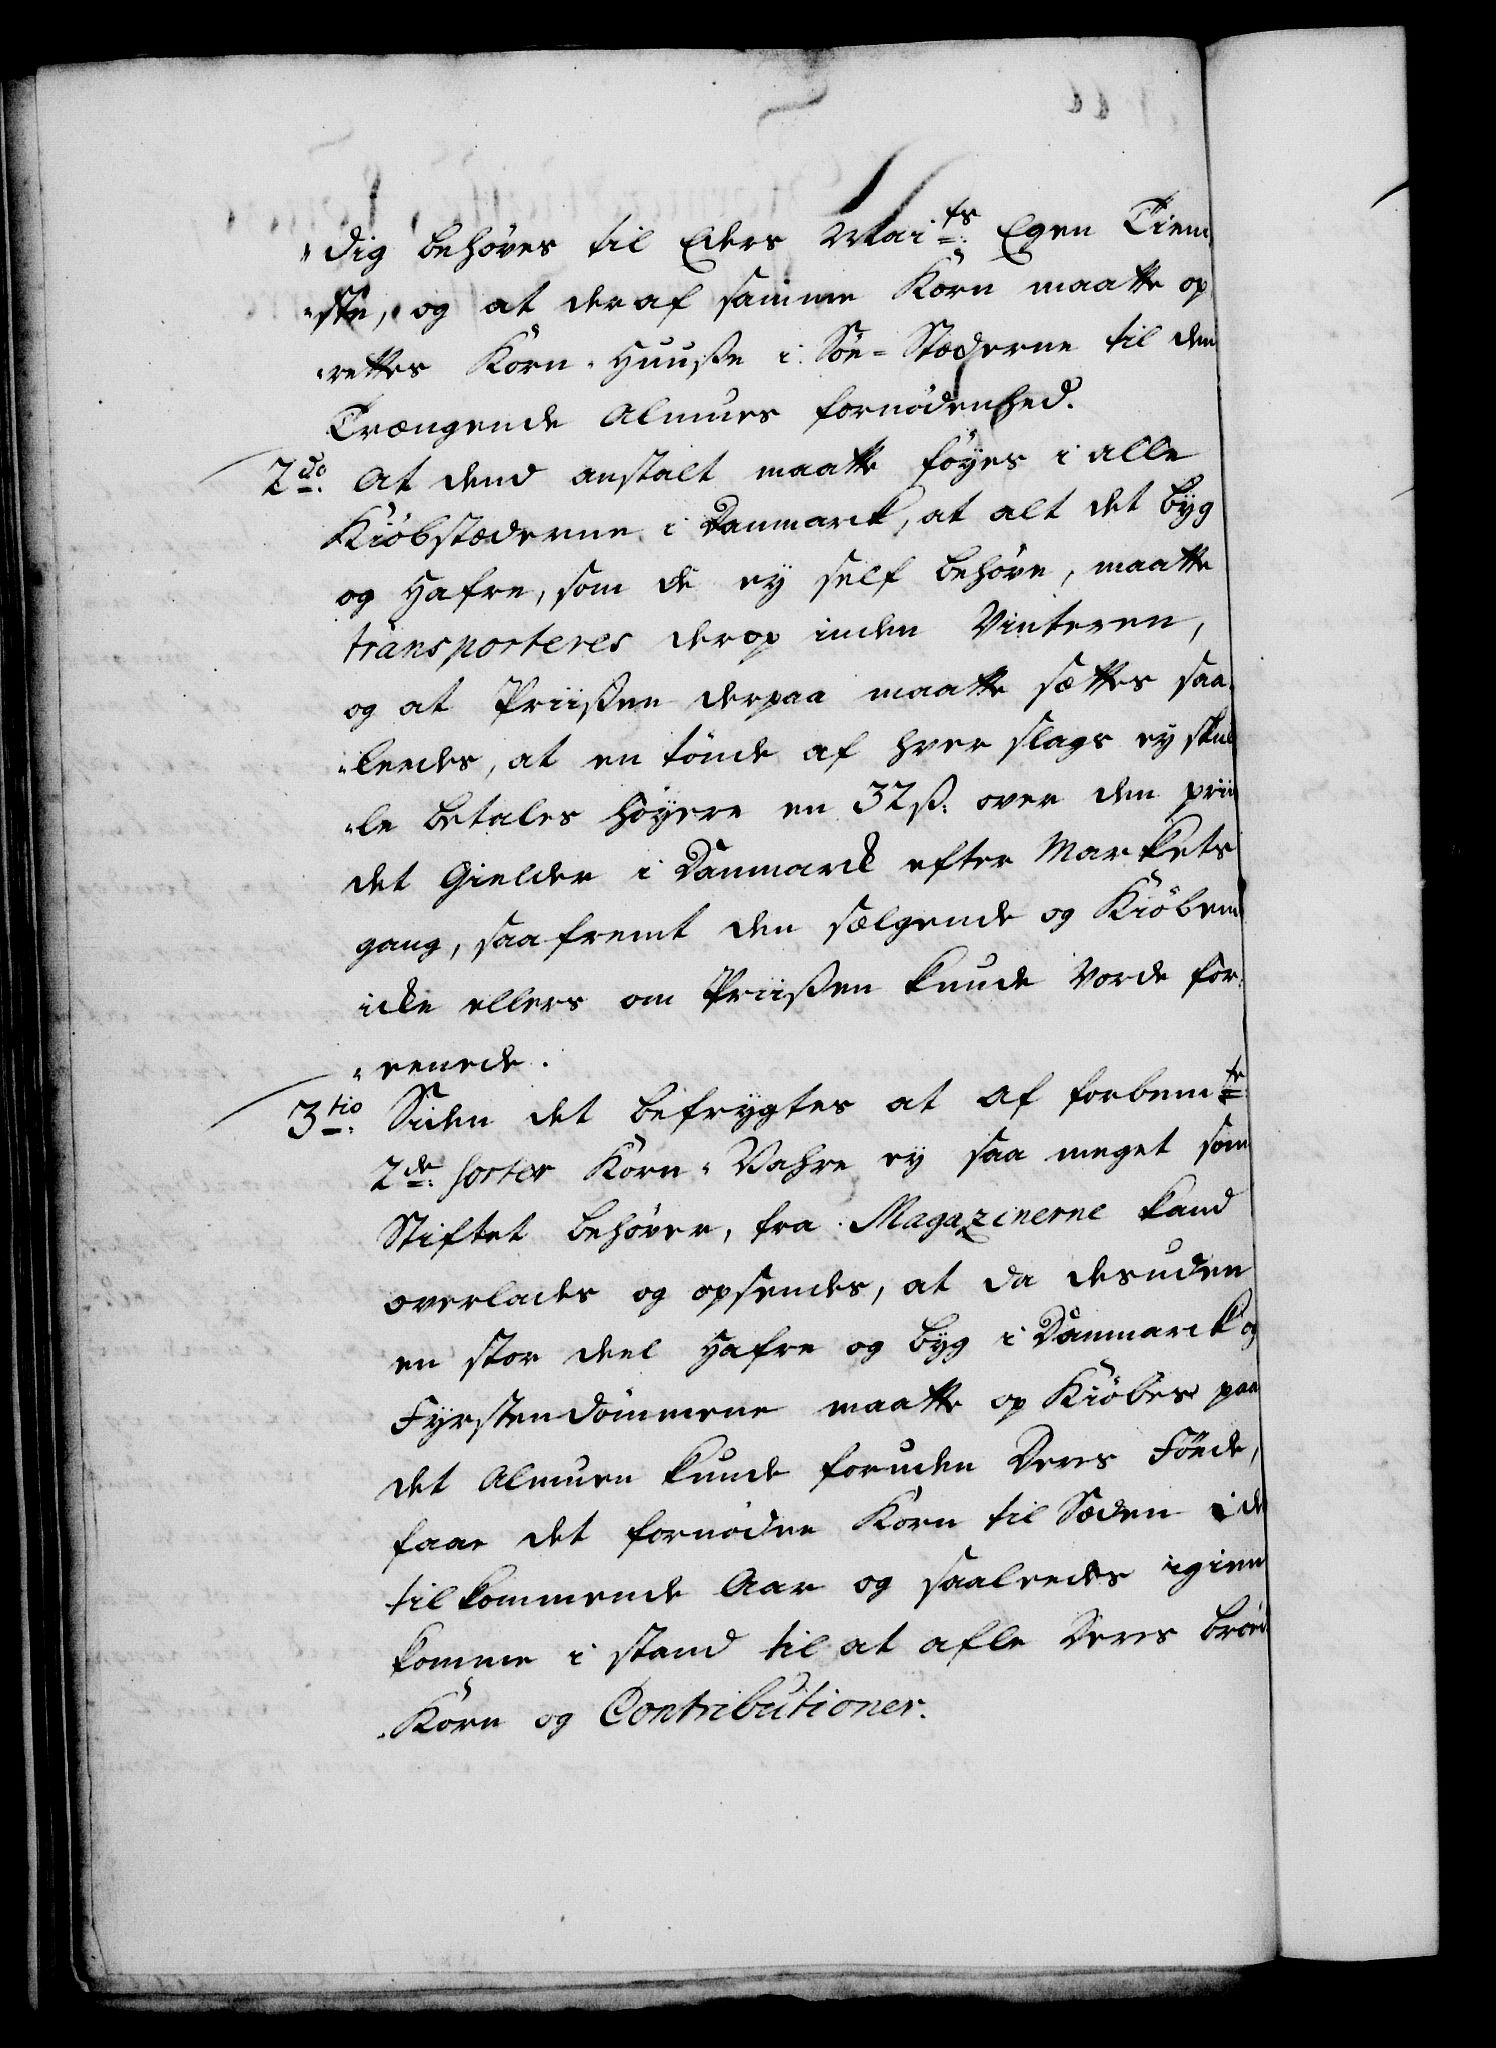 "dig behøves til Eders Mai^ts: Egen Tien
"ste, og at deraf samme Korn maatte op
"rettes Korn-Huuße i Søe-Stæderne til den
Trængende Almues fornødenhed.
2^do: At dend anstalt maatte føyes i alle
Kiøbstæderne i Danmarck, at alt det Byg
og Hafre, som de ey self behøve, maatte
transporteres derop inden Vinteren,
og at Priißen derpaa maatte sættes saa-
"leedes, at en tønde af hver slags ey skul
"le betales høyere en 32 ß: over den priis
det Gielder i Danmarck efter Markets
gang, saafremt den sælgende og Kiøbend
icke ellers om Priißen kunde vorde for-
"eenede.
3^tio: Siden det befrygtes at af forbem^te:
2^de: sorter Korn-Vahre ey saa meget som
Stiftet behøver, fra Magazinerne kand
overlades og opsendes, at da desuden
en stor deel Hafre og Byg i Danmarck og
Fyrstendømmene maatte op Kiøbes paa
det Almuen kunde foruden Deres Føede,
faae det fornødne Korn til Sæden i de
tilkommende Aar og saaledes igien
komme i stand til at afle Deres brød
Korn og Contributioner.